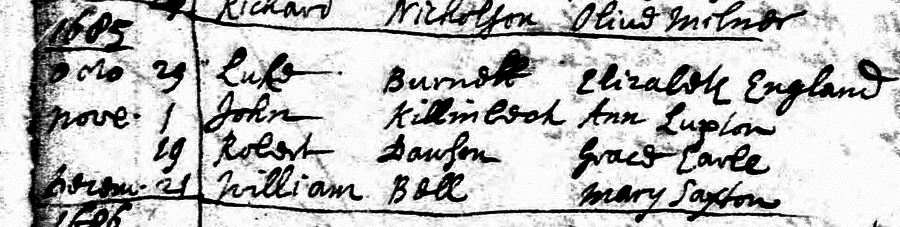 Richard Nicholson Oliue Milner
1685
Octo 29 Luke Burnett Elizabeth England
Nove. 1 John Killinbeck Ann Lupton
19 Robert Dawson Grace Earle
Decem. 21 William Bell Mary Saxton
1686